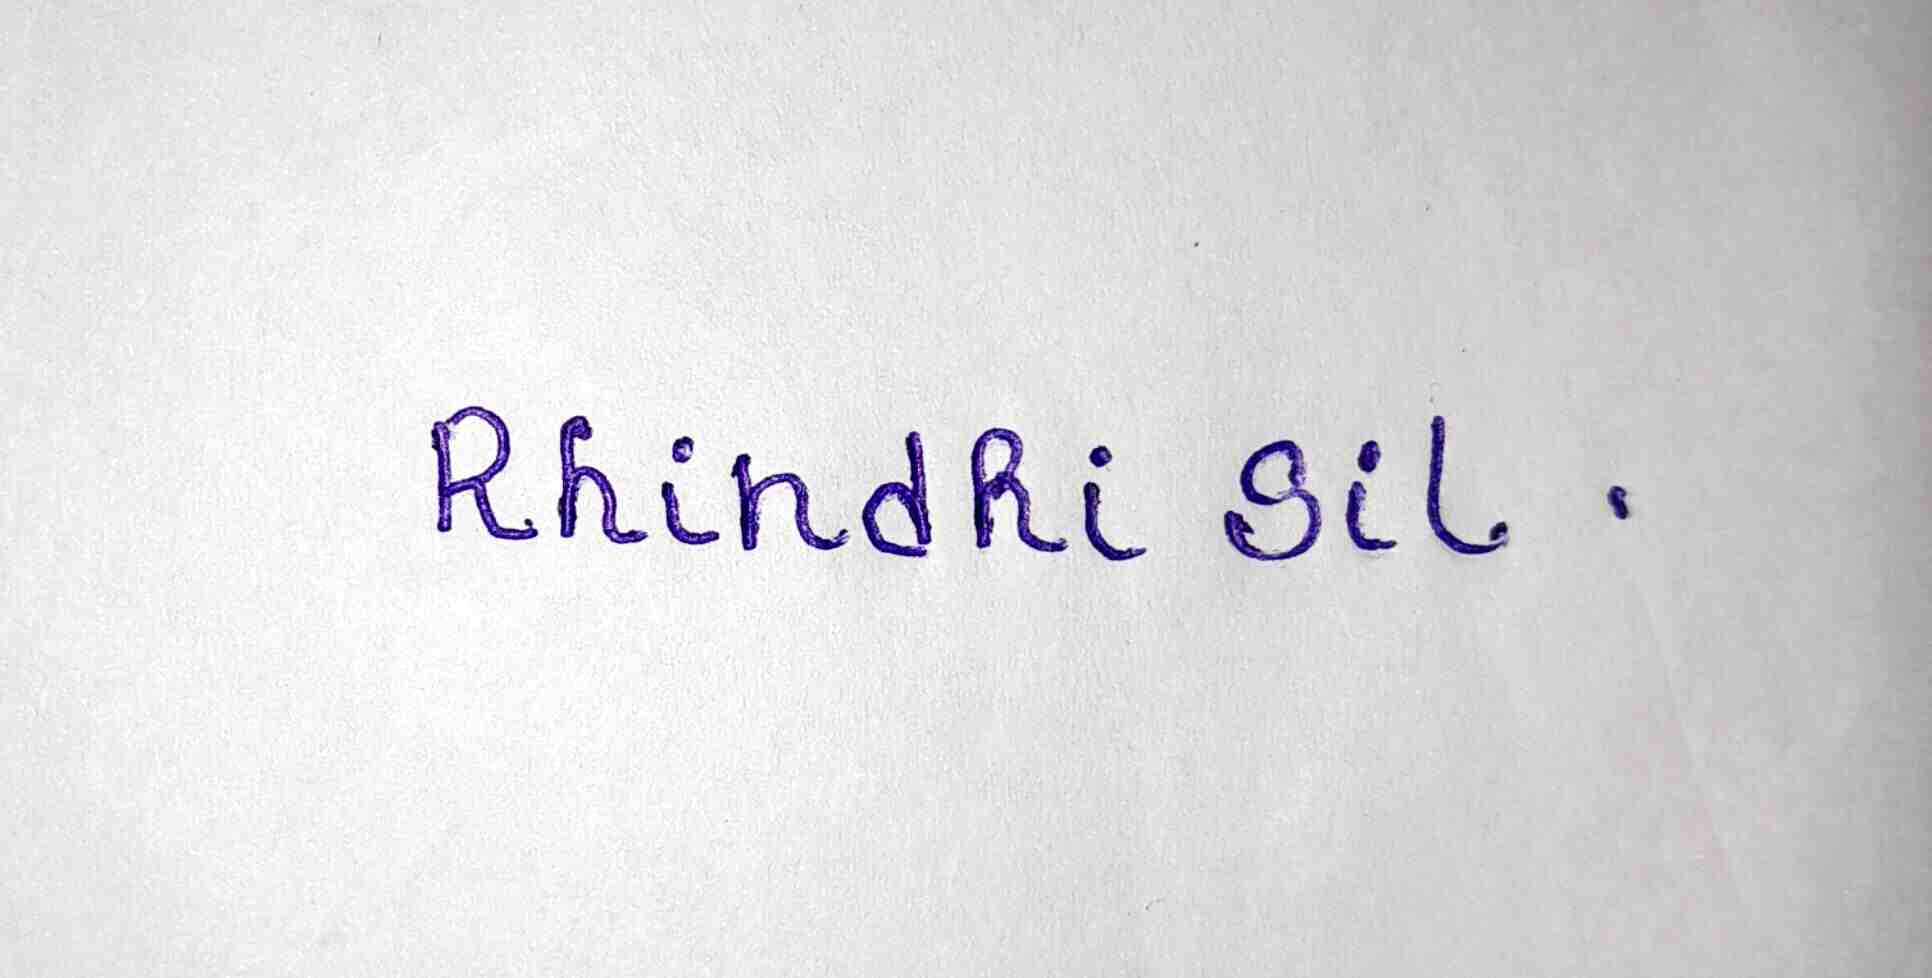 Rhindhi Sil .